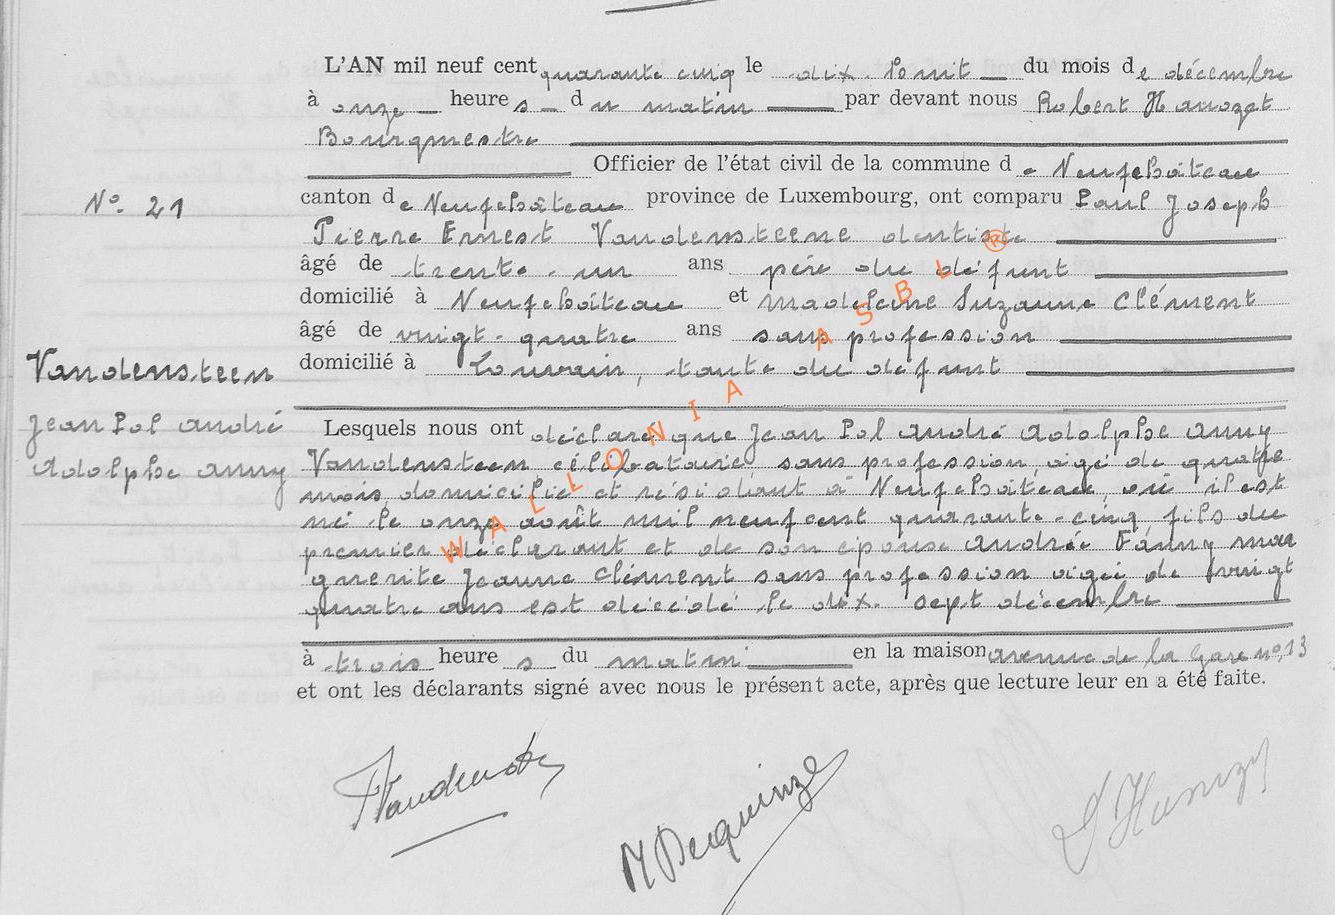 L'AN mil neuf cent quarante cinq le dix-huit du mois de décembre
à onze heures du matin par devant nous Robert Hanozet
Bourgmestre
Officier de l'état civil de la commune de Neufchâteau
N° 21
canton de Neufchâteau province de Luxembourg, ont comparu Paul Joseph
Pierre Ernest Vandensteene dentiste
âgé de trente-un ans père du défunt
domicilié à Neufchâteau et Madeleine Suzanne Clément
âgé de vingt-quatre ans sans profession
domicilié à Louvain, tante du défunt
Vandensteen
Jean Pol André
Adolphe Anny
Lesquels nous ont déclaré que Jean Pol André Adolphe Anny
Vandensteen célibataire sans profession, âgé de quatre
mois, domicilié et résidant à Neufchâteau, où il est
né le onze août mil neuf cent quarante-cinq, fils du
premier déclarant et de son épouse Andrée Fanny Mar
guerite Jeanne Clément sans profession âgée de vingt
quatre ans est décédé le dix-sept décembre
à trois heures du matin en la maison avenue de la Gare n° 13
et ont les déclarants signé avec nous le présent acte, après que lecture leur en a été faite.
WALLONIA ASBL ®